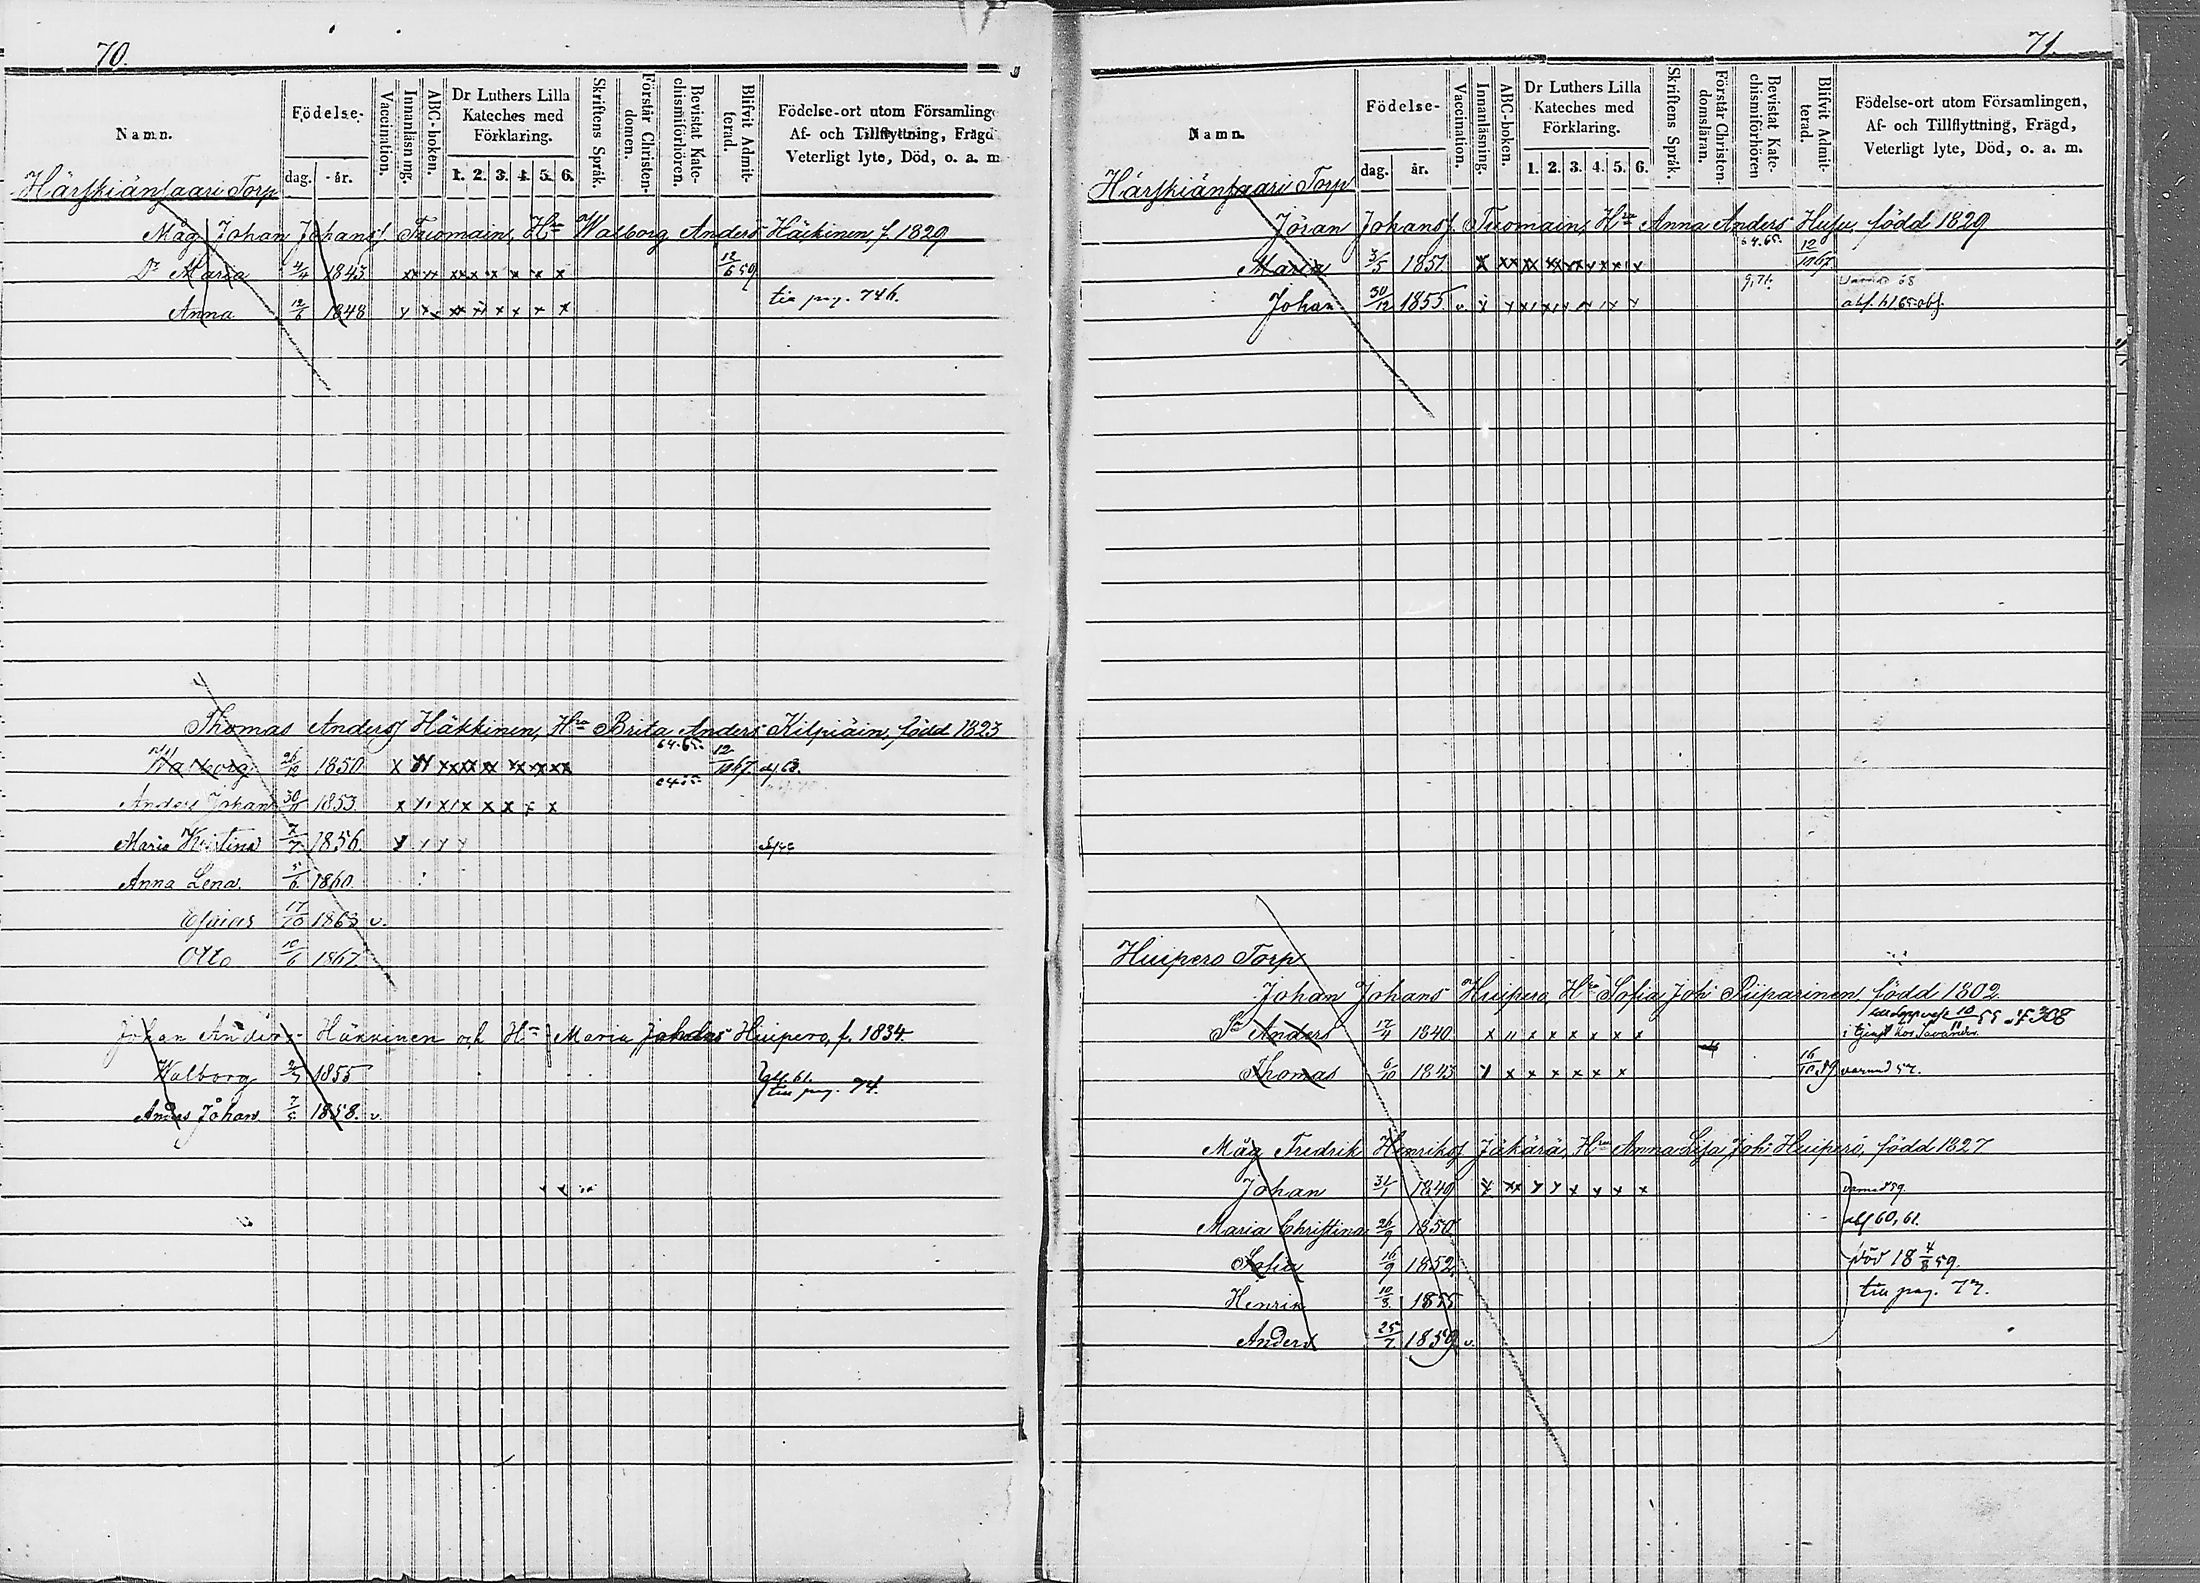 70.
Namn.
Födelse-
dag.
år.
Vaccination.
Innanläsning.
ABC-boken.
Dr Luthers Lilla
Kateches med
Förklaring.
1. 2. 3. 4. 5. 6.
Skriftens Språk.
Förstår Christen-
domen.
Bevistat Kate-
chismiförhören.
Blifvit Admit-
terad.
Födelse-ort utom Församling
Af- och Tillflyttning, Frägd
Veterligt lyte, Död, o. a. m
Härskiänsaari Torp
Måg Johan Johans. Tuomain, H. Walborg Anders Häkinen, f. 1829
Dr Maria 4/4 1843 xx xx xx x x x x x 12/6 59
Anna 12/6 1848 x x x x x x x x x till pag. 746.
Thomas Anders Häkkinen, Hru Brita Anders Kilpiäin, född 1823
Walborg 26/12 1850 64.65. 12/10 67.
Anders Johan 30/11 1853 x x x x x x x x
Maria Kristina 7/7 1856
Anna Lena 5/6 1860.
17/10 1863 v.
Otto 10/6 1867.
Johan Anders- Häkkinen och H Maria Johans Huipero, f. 1834
Walborg 1855 61.
till pag. 74.
Anders Johan 7/5 1858. v.
71.
Namn.
Födelse-
dag.
år.
Vaccination.
Innanläsning.
ABC-bokon.
Dr Luthers Lilla
Kateches med
Förklaring.
1. 2. 3. 4. 5. 6.
Skriftens Språk.
Förstår Christen-
domsläran.
Bevistat Kate-
chismiförhören
Blifvit Admit-
terad.
Födelse-ort utom Församlingen,
Af- och Tillflyttning, Frägd,
Veterligt lyte, Död, o. a. m.
Härskiänsaari Torp
Jöran Johans. Tuomain, Hru Anna Anders Husu, född 1829
Maria 3/5 1851 64.65. 12/10 67.
Johan 30/12 1855 v. 9,71.
Huipero Torp
Johan Johans Huipero Hru Sofia Joh Piiparinen, född 1802
10/11 55 308
Sr Anders 17/4 1840 x x x x x x x i tjenst hos
Thomas 6/10 1843 x x x x x x x 16/10 59
Måg Fredrik Henriks Jäkärä, Hru Anna Lisa Joh Huipero, född 1827
Johan 31/1 1849
Maria Christina 26/9 1850 abs 60, 61.
Sofia 16/9 1852. död 18 4/8 59.
Henrik 10/8. 1855 till pag. 77.
Anders 25/7. 1859 v.